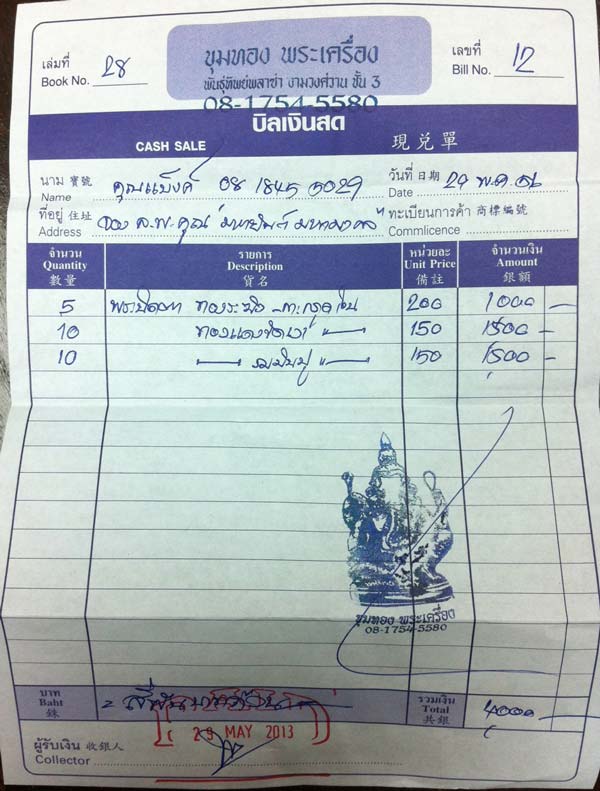 เล่มที่ Book No. 28
ขุมทอง พระเครื่อง
พันธุ์ทิพย์พลาซ่า งามวงศ์วาน ชั้น 3
08-1754-5580
เลขที่ Bill No. 12
บิลเงินสด
CASH SALE 現兑單
นาม 寶號 Name คุณแบ็งค์ 08 1845 5029
วันที่ 日期 Date 29 พ.ค. 56
ที่อยู่ 住址 Address
ทะเบียนการค้า 商標編號 Commlicence
จำนวน รายการ หน่วยละ จำนวนเงิน
Quantity Description Unit Price Amount
數量 貨名 備註 銀額
5 พระปิดตา 200 1000 -
10 150 1500 -
10 150 1500 -
ขุมทอง พระเครื่อง
08-1754-5580
บาท Baht 銖 = สี่พันบาทถ้วน =
รวมเงิน Total 共銀 4000 -
29 MAY 2013
ผู้รับเงิน 收銀人
Collector